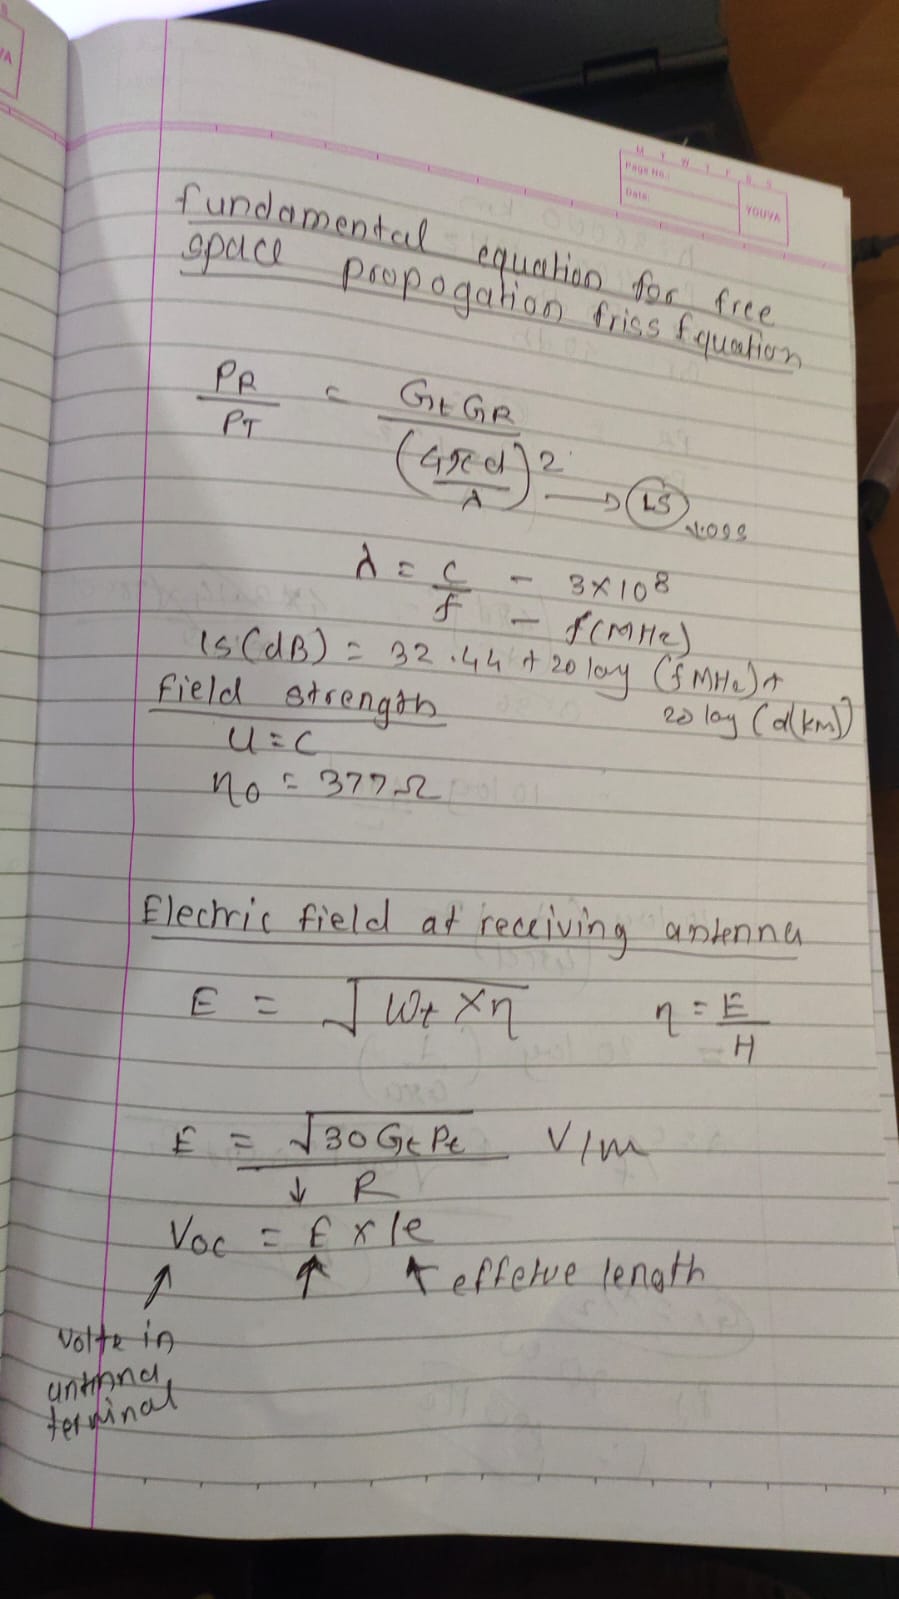 M T W T F S S
Page No.:
Date:
YOUVA
fundamental equation for free
space propogation friss Equation
PR / PT = Gt GR / (4πd / λ)² → LS Loss
λ = c / f - 3×10⁸ / - f(MHz)
ls(dB) = 32.44 + 20 log (f MHz) +
20 log (d(km))
field strength
u = c
η0 = 377Ω
Electric field at receiving antenna
E = √Wt × η η = E / H
E = √30 Gt Pt / R V/m
↓
Voc = E × le
↑ ↑ ↑ effetve length
Volte in
antnna
terminal